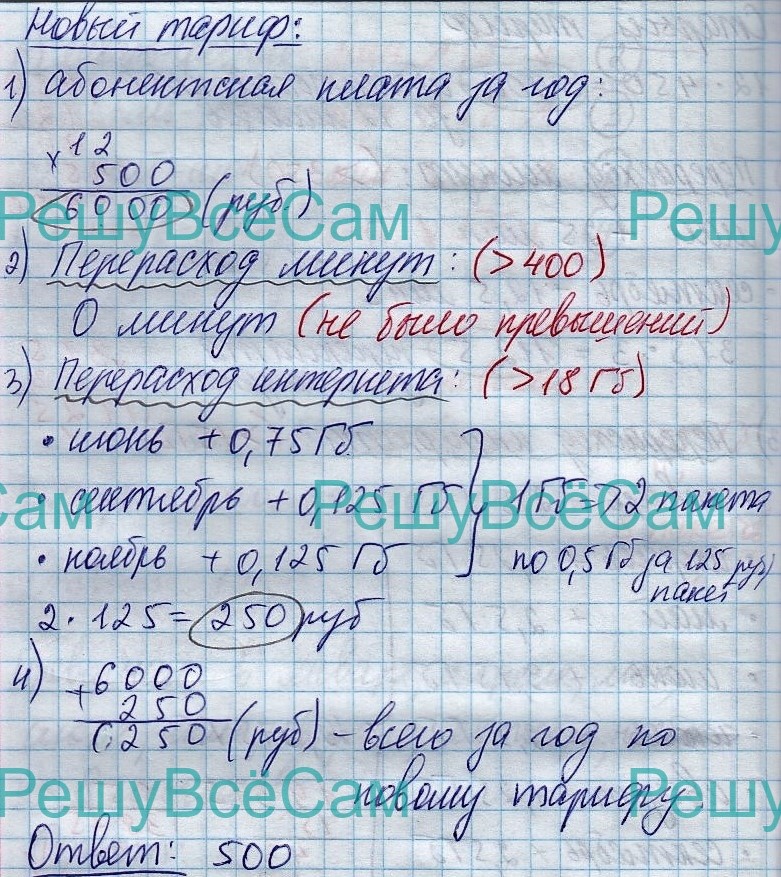 Новый тариф:
1) абонентская плата за год:
× 12
500
6000 (руб.)
РешуВсёСам Решу
2) Перерасход минут: (>400)
0 минут (не было превышений)
3) Перерасход интернета: (>18 Гб)
• июнь +0,75 Гб
• сентябрь +0,125 Гб } 1 Гб => 2 пакета
Сам РешуВсёСам
• ноябрь +0,125 Гб по 0,5 Гб за 125 руб)
пакет
2·125 = 250 руб
4) +6000
250
6250 (руб) - всего за год по
новому тарифу.
РешуВсёСам Решу
Ответ: 500